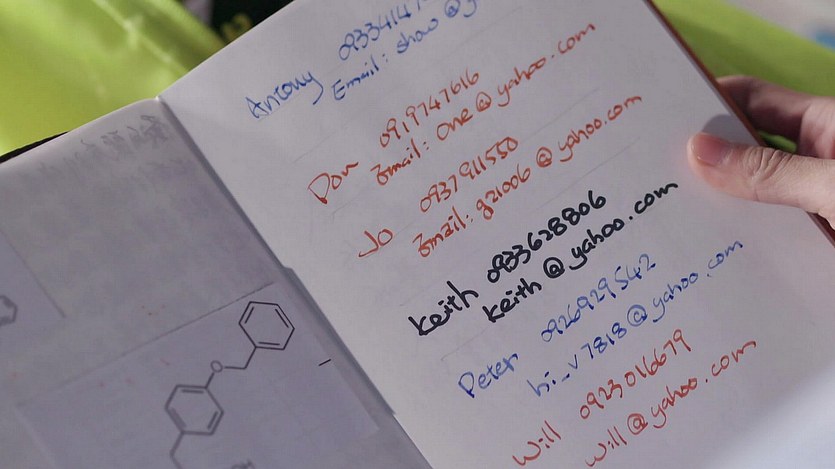 Antony 0933414
Email: show@y
Don 0919747616
Email: one@yahoo.com
Jo 0937911550
Email: g21006@yahoo.com
Keith 0933628806
keith@yahoo.com
Peter 0926929542
hi_v7818@yahoo.com
Will 0923016679
will@yahoo.com